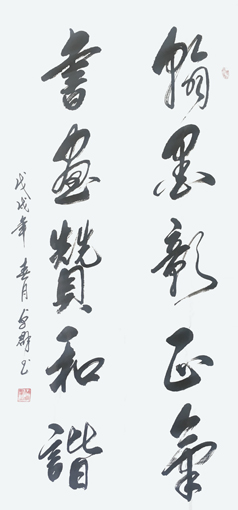 翰墨彰正氣
書畫贊和諧
戊戌年春月